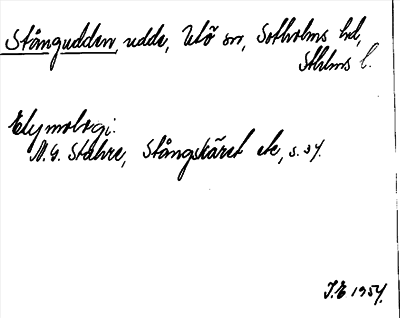 Stångudden, udde, Utö sn, Sotholms hd,
Sthlms l.
Etymologi:
N. G. Stahre, Stångskäret etc, s. 34.
J.E 1954.